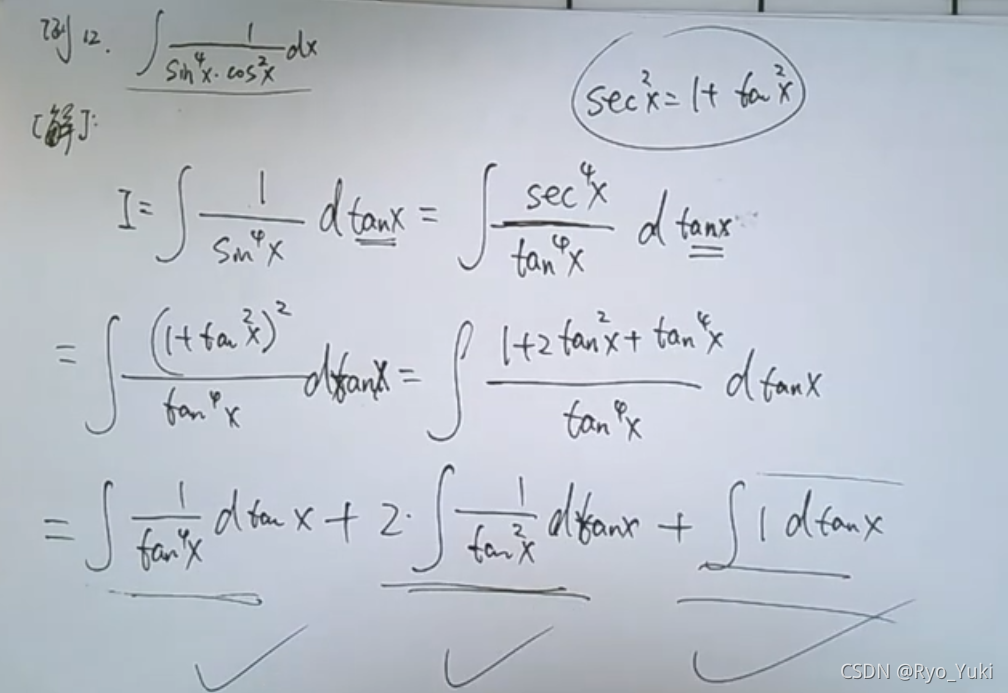 例12. ∫ 1/(sin⁴x·cos²x) dx
sec²x = 1 + tan²x
[解]:
I = ∫ 1/sin⁴x d tanx = ∫ sec⁴x/tan⁴x d tanx
= ∫ (1+tan²x)²/tan⁴x d tanx = ∫ (1+2tan²x+tan⁴x)/tan⁴x d tanx
= ∫ 1/tan⁴x d tanx + 2·∫ 1/tan²x d tanx + ∫ 1 d tanx
CSDN @Ryo_Yuki